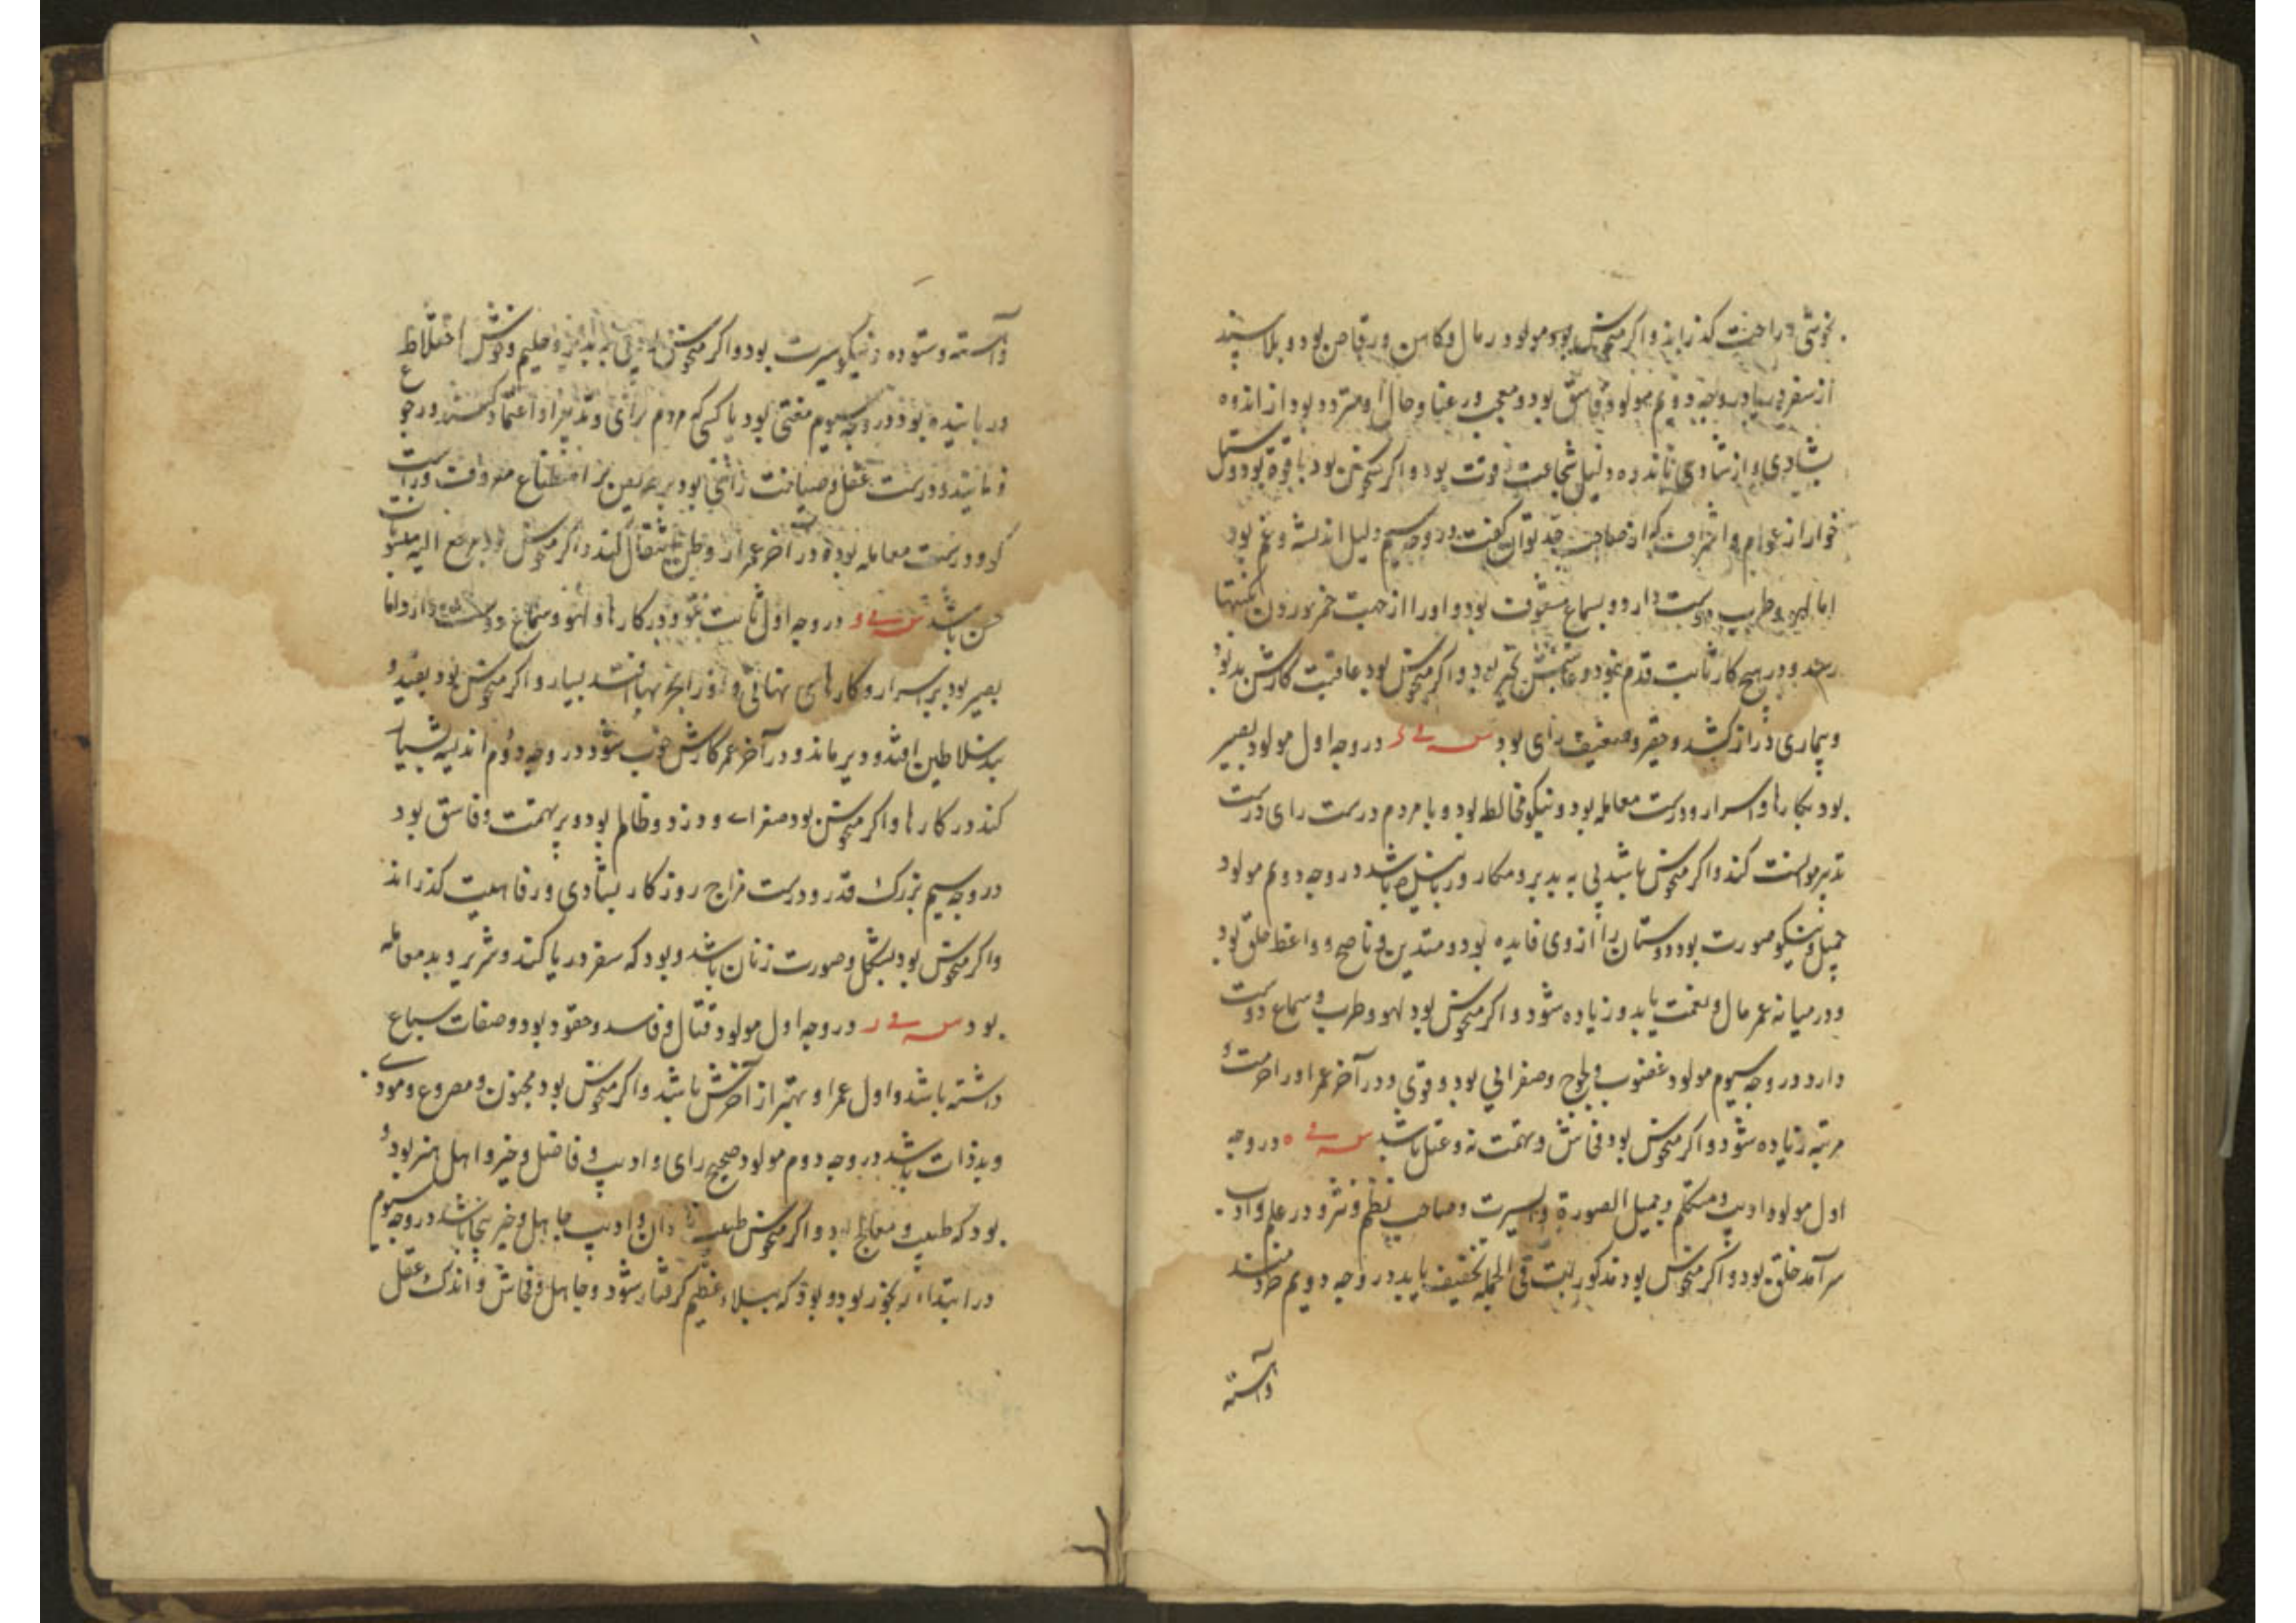 بخوشی و راحت کذراند و اکر منحوس بود مولود رمال و کاهن و رقاص بود و بلا بیند
از سفر دریا در وجه دویم مولود فاسق بود و معجب و رعنا و حال او متردد بود از اندوه
بشادی و از شادی باندوه و دلیل شجاعت و قوت بود و اکر منحوس بود با قوة بود و
خوار از عوام و اشراف که از صاحب توان کفت در وجه سیم دلیل اندیشه و غم بود
اما لهو و طرب دوست دارد و بسماع مشعوف بود و او را از جهت خمر خوردن
رسد و در هیچ کار ثابت قدم نبود و بود و اکر منحوس بود عاقبت کارش بد بود
و بیماری دراز کشد و حقیر و ضعیف رای بود در وجه اول مولود بصیر
بود بکارها و اسرار و درست معامله بود و نیکو مخالطه بود و با مردم درست رای درست
تدبیر موانست کند و اکر منحوس باشد بی تدبیر و مکار و باشد در وجه دویم مولود
جمیل و نیکو صورت بود و دوستان را از وی فایده بود و متدین و ناصح و واعظ خلق بود
و در میانه عمر مال و نعمت یابد و زیاده شود و اکر منحوس بود لهو و طرب و سماع دوست
دارد در وجه سیوم مولود غضوب و لجوج و صفرایی بود و قوی و در آخر عمر او را حرمت و
مرتبه زیاده شود و اکر منحوس بود فحاش و بهمت نه و عقل باشد در وجه
اول مولود ادیب و متکلم و جمیل الصورة و السیرت و صاحب نظم و نثر و در علم و ادب
سرآمد خلق بود و اکر منحوس بود مذکورات فی الجمله تخفیف یابد در وجه دویم خردمند
آراسته
آراسته و ستوده و نیکو سیرت بود و اکر منحوس بود بی تدبیر و حلیم و خوش اختلاط
در وجه سیوم مفتی بود یا کسی که مردم برای و تدبیر او اعتماد کنند و رجوع
نمایند و درست عقل و بود بر اصطناع معروف و راست
کو و درست معامله بود و در آخر عمر از وطن انتقال کند و اکر منحوس بود مرجع الیه
حسن باشد در وجه اول ثابت بود در کارها و لهو و سماع دوست دارد اما
بصیر بود بر اسرار و کارهای نهانی و بسیار و اکر منحوس بود بقید و
بند سلاطین افتد و دیر ماند و در آخر عمر کارش خوب شود در وجه دوم اندیشه بسیار
کند در کارها و اکر منحوس بود صفرای و دزد و ظالم بود و پر تهمت و فاسق بود
در وجه سیم بزرک قدر و درست مزاج روزکار بشادی و رفاهیت کذراند
و اکر منحوس بود بشکل و صورت زنان باشد و بود که سفر دریا کند و شریر و بد معامله
بود در وجه اول مولود قتال و فاسد و حقود بود و صفات سباع
داشته باشد و اول عمر او بهتر از آخرش باشد و اکر منحوس بود مجنون و مصروع و موذی
و بدذات باشد در وجه دوم مولود صحیح رای و ادیب و فاضل و خیر و اهل هنر بود و
بود که طبیب و معالج بود و اکر منحوس طبیب نادان و ادیب جاهل و باشد در وجه سیوم
در ابتداء رنجور بود و بود که ببلاء عظیم کرفتار شود و جاهل و فحاش و اندک عقل